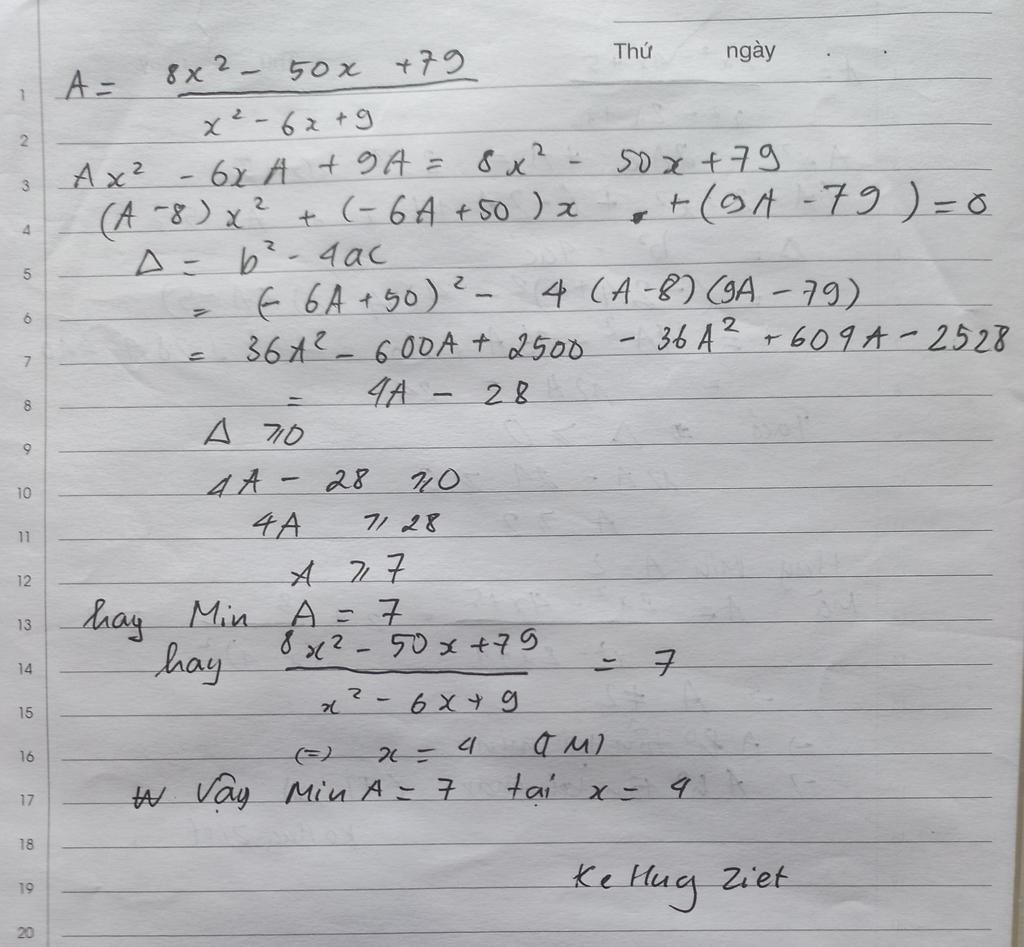 Thứ ngày . .
1 A = 8x² - 50x + 79
2 x² - 6x + 9
3 Ax² - 6xA + 9A = 8x² - 50x + 79
4 (A - 8)x² + (-6A + 50)x + (9A - 79) = 0
5 Δ = b² - 4ac
6 = (-6A + 50)² - 4(A - 8)(9A - 79)
7 = 36A² - 600A + 2500 - 36A² + 604A - 2528
8 = 4A - 28
9 Δ ⩾ 0
10 4A - 28 ⩾ 0
11 4A ⩾ 28
12 A ⩾ 7
13 hay Min A = 7
14 hay 8x² - 50x + 79 = 7
15 x² - 6x + 9
16 (=) x = 4 (TM)
17 Vậy Min A = 7 tại x = 4
18
19 Ke Hug Ziet
20